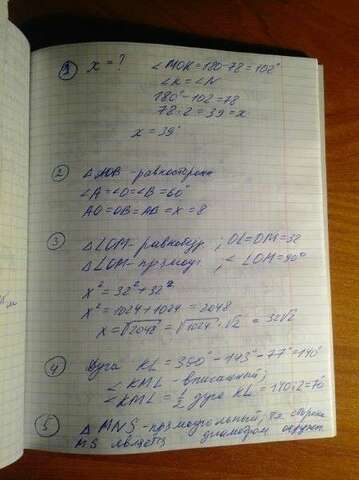 1 x = ? ∠MOK = 180-78 = 102°
∠K = ∠N
180° - 102 = 78
78 : 2 = 39 = x
x = 39°
2 △AOB - равносторонн
∠A = ∠O = ∠B = 60°
AO = OB = AB = x = 8
3 △LOM - равнобедр, OL = OM = 32
△LOM - прямоуг, ∠LOM = 90°
x² = 32² + 32²
x² = 1024 + 1024 = 2048
x = √2048 = √1024 · √2 = 32√2
4 Дуга KL = 360° - 143° - 77° = 140°
∠KML - вписанный;
∠KML = 1/2 дуга KL = 140:2 = 70°
5 △MNS - прямоугольный, т.к. сторона
MS является диаметром окружн